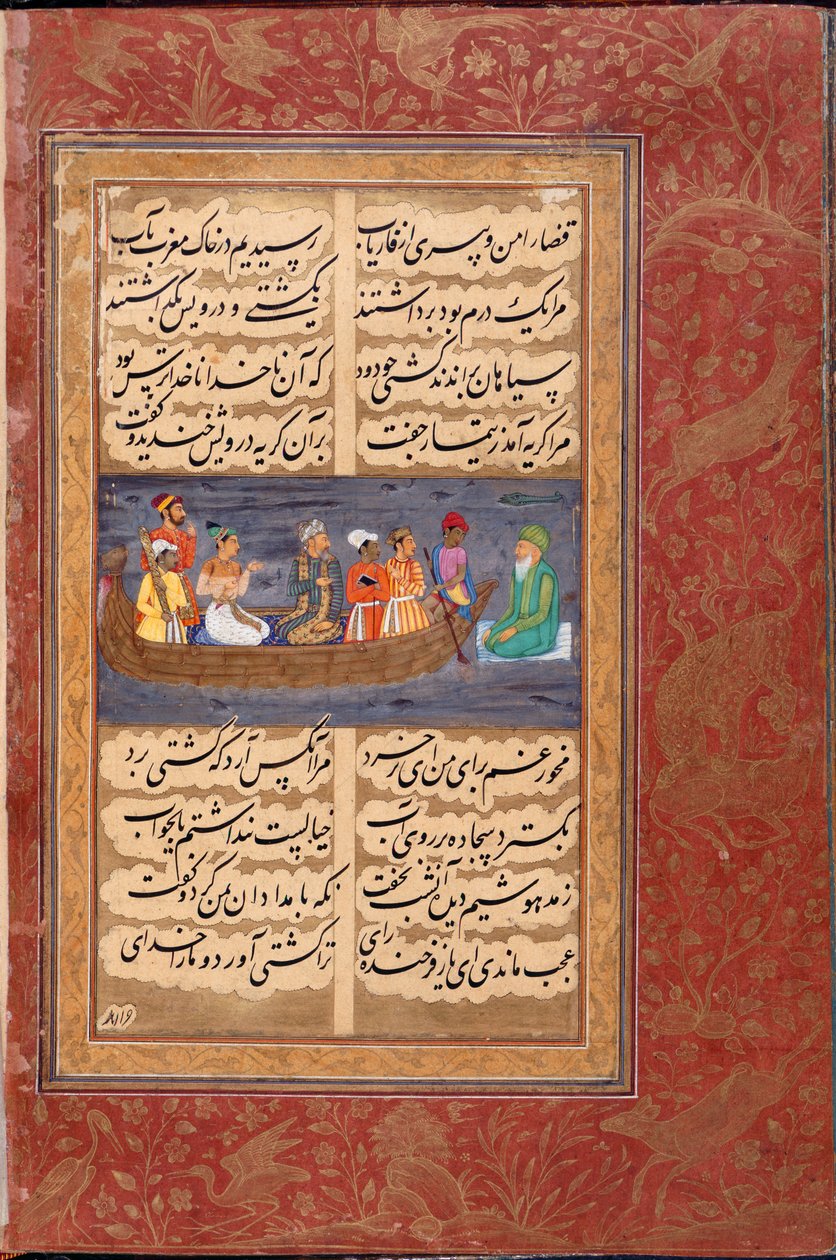 قضا را من و پیری از فاریاب رسیدیم در خاک مغرب بآب
مرا یک درم بود برداشتند بکشتی و درویش بگذاشتند
سیاهان براندند کشتی چو دود که آن ناخدا ناخدا ترس بود
مرا گریه آمد ز تیمار جفت بر آن گریه درویش خندید و گفت
مخور غم برای من ای پر خرد مرا آنکس آرد که کشتی برد
بگسترد سجاده بر روی آب خیالیست پنداشتم یا بخواب
ز مدهوشیم دیده آن شب نخفت نگه بامدادان بمن کرد و گفت
عجب ماندی ای یار فرخنده رای ترا کشتی آورد و ما را خدای